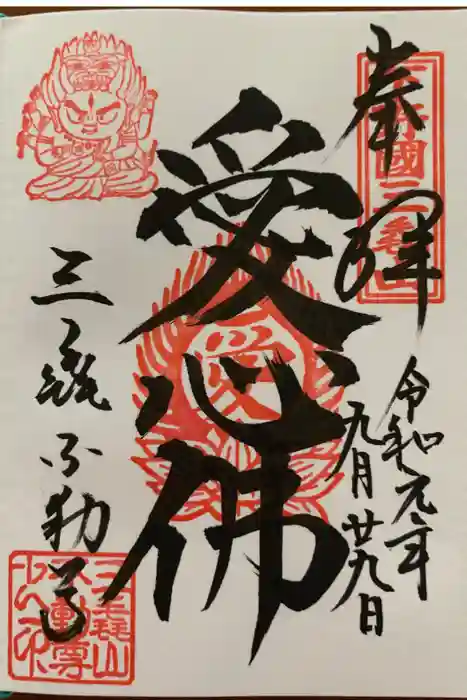 奉拝
令和元年
九月廿九日
愛心佛
三毳不動尊
三毳山
不動尊